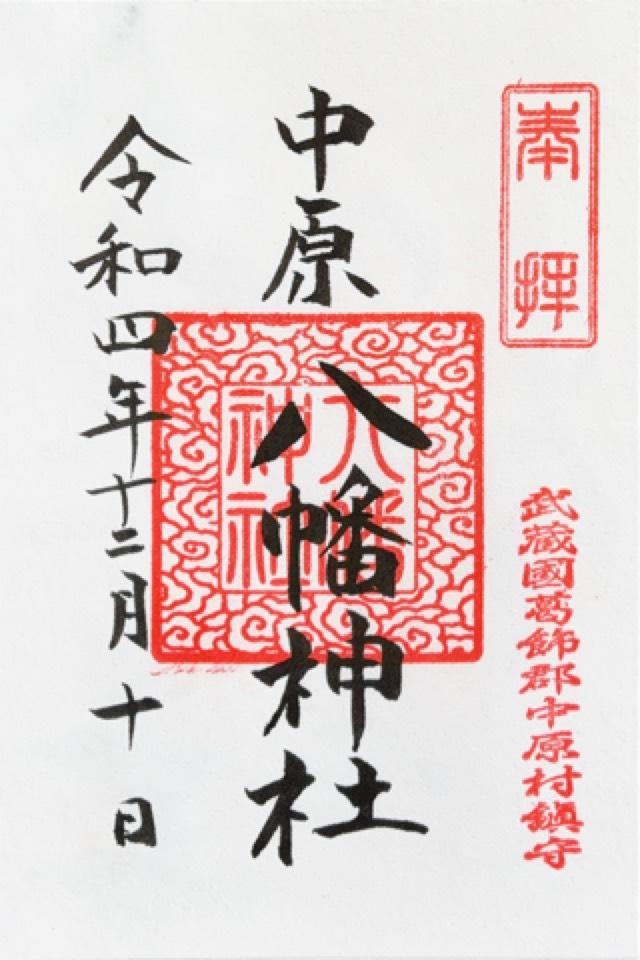 奉拝
武蔵國葛飾郡中原村鎮守
中原八幡神社
八幡
神社
令和四年十二月十日